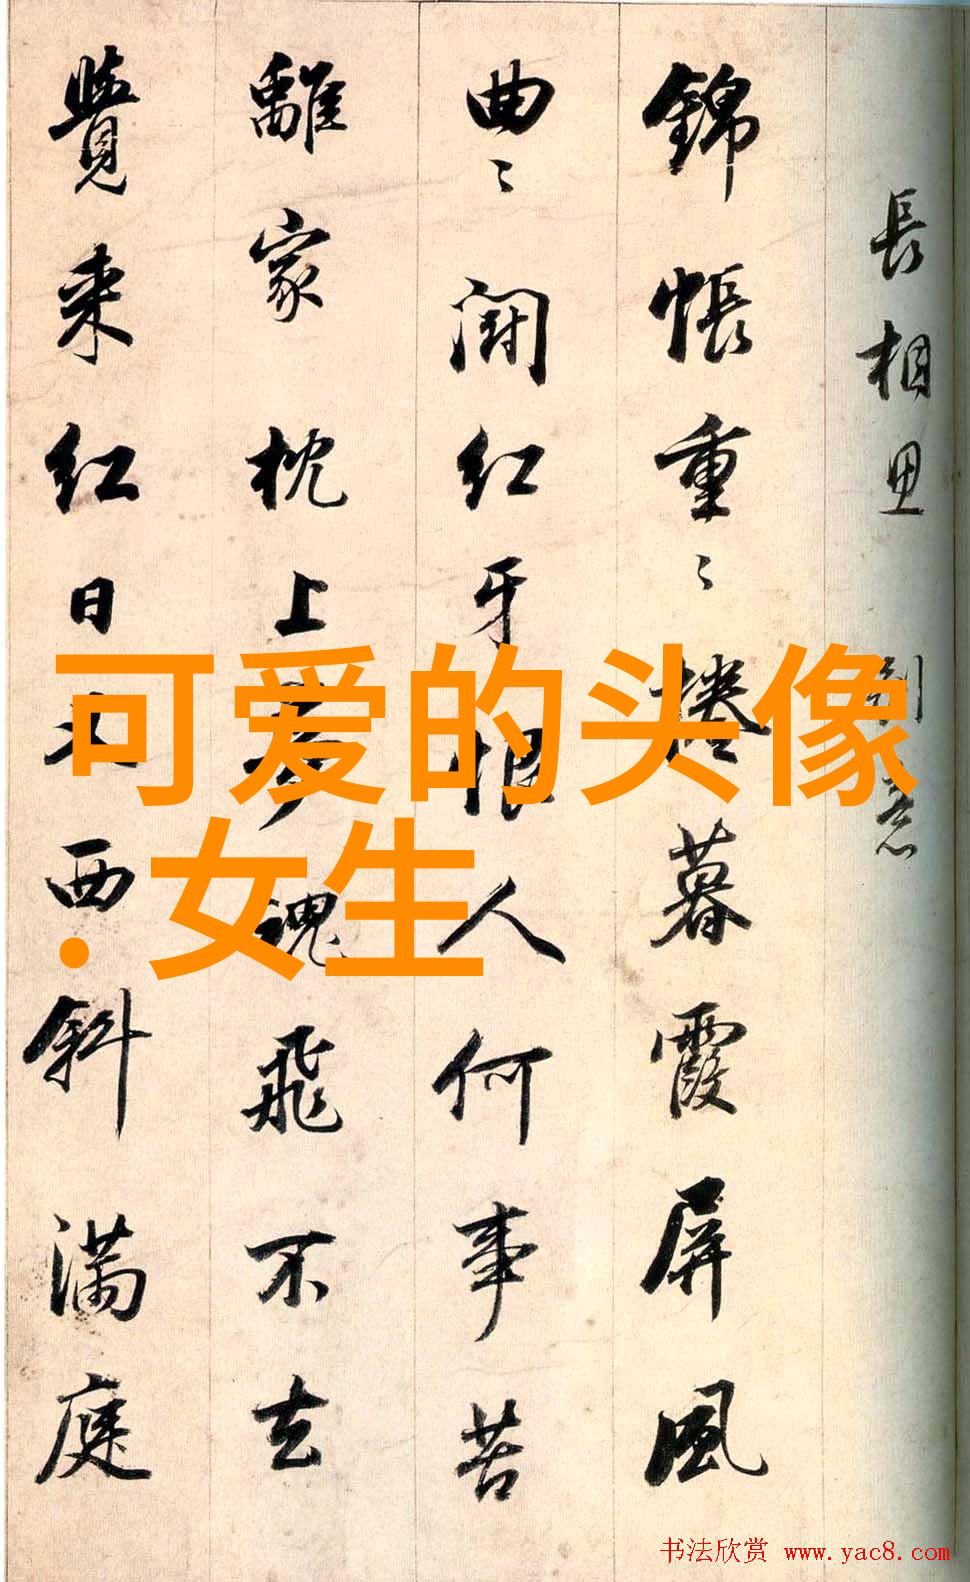 長相思 意
錦帳重〻捲暮霞屏風
曲〻鬪红牙恨人何事苦
離家枕上夢魂飛不去
覺来红日又西斜滿庭
可爱的头像
·女生
书法欣赏 www.yac8.com